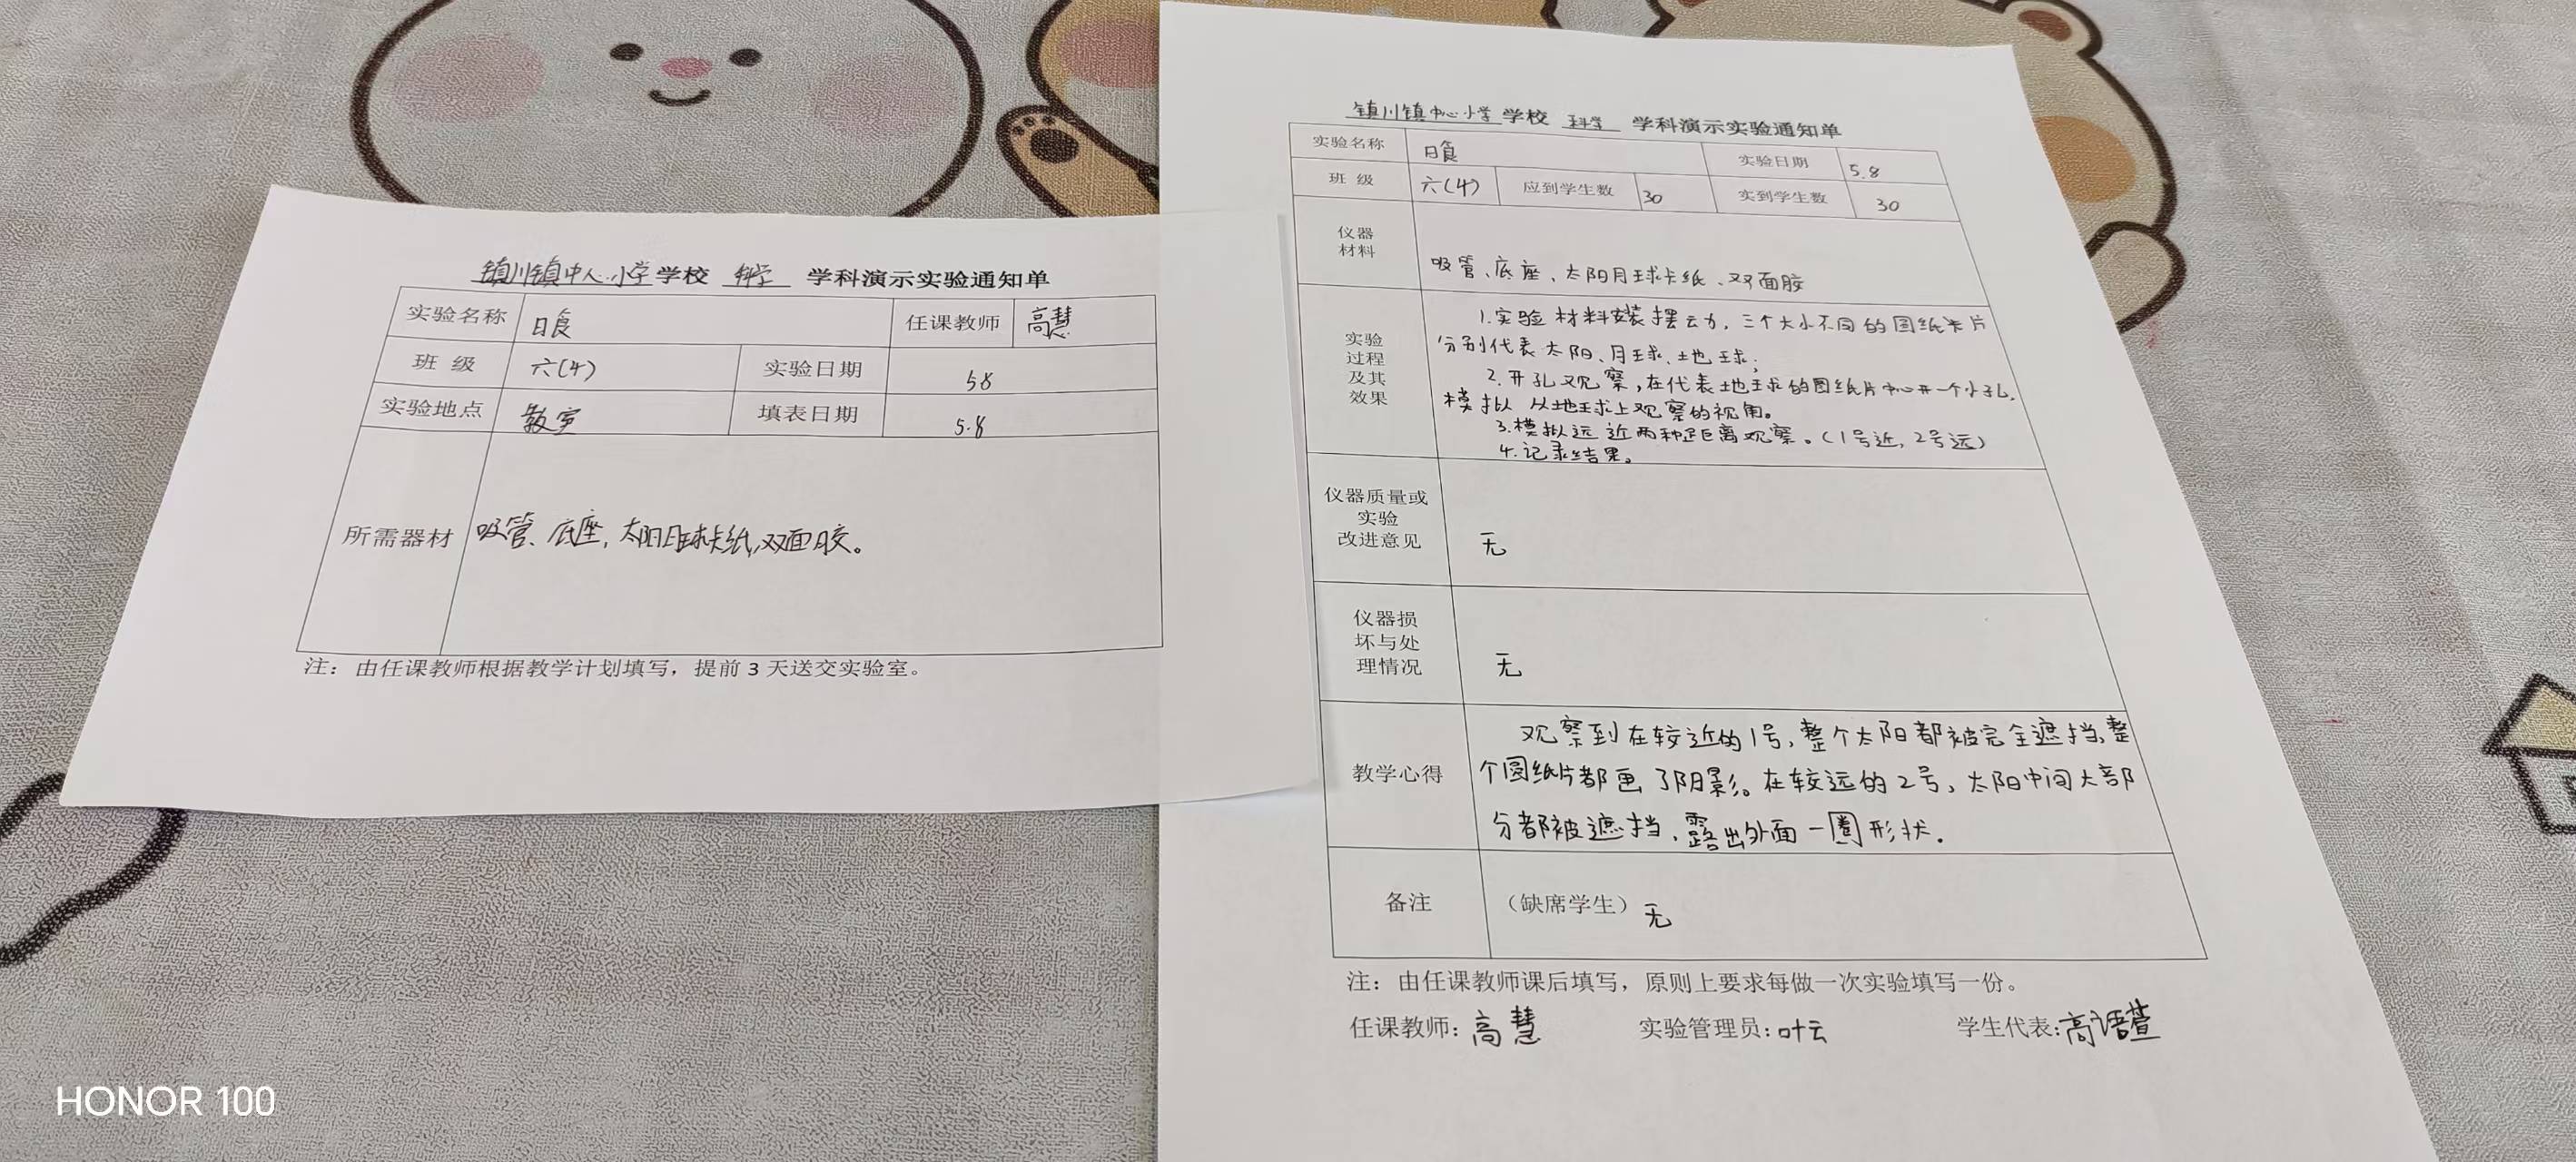 镇川镇中心小学学校 科学 学科演示实验通知单
实验名称 日食 任课教师 高慧
班 级 六(4) 实验日期 5.8
实验地点 教室 填表日期 5.8
所需器材 吸管、底座,太阳月球卡纸,双面胶。
注：由任课教师根据教学计划填写，提前 3 天送交实验室。
镇川镇中心小学学校 科学 学科演示实验通知单
实验名称 日食 实验日期 5.8
班 级 六(4) 应到学生数 30 实到学生数 30
仪器
材料
吸管、底座、太阳月球卡纸、双面胶
实验
过程
及其
效果
1.实验材料安装摆动，三个大小不同的圆纸卡片
分别代表太阳、月球、地球；
2.开孔观察,在代表地球的圆纸片中心开一个小孔,
模拟从地球上观察的视角。
3.模拟远近两种距离观察。(1号近,2号远)
4.记录结果。
仪器质量或
实验
改进意见
无
仪器损
坏与处
理情况
无
教学心得
观察到在较近的1号,整个太阳都被完全遮挡,整
个圆纸片都画了阴影。在较远的2号,太阳中间大部
分都被遮挡,露出外面一圈形状.
备注 （缺席学生） 无
注：由任课教师课后填写，原则上要求每做一次实验填写一份。
任课教师：高慧 实验管理员：叶云 学生代表:高语萱
HONOR 100